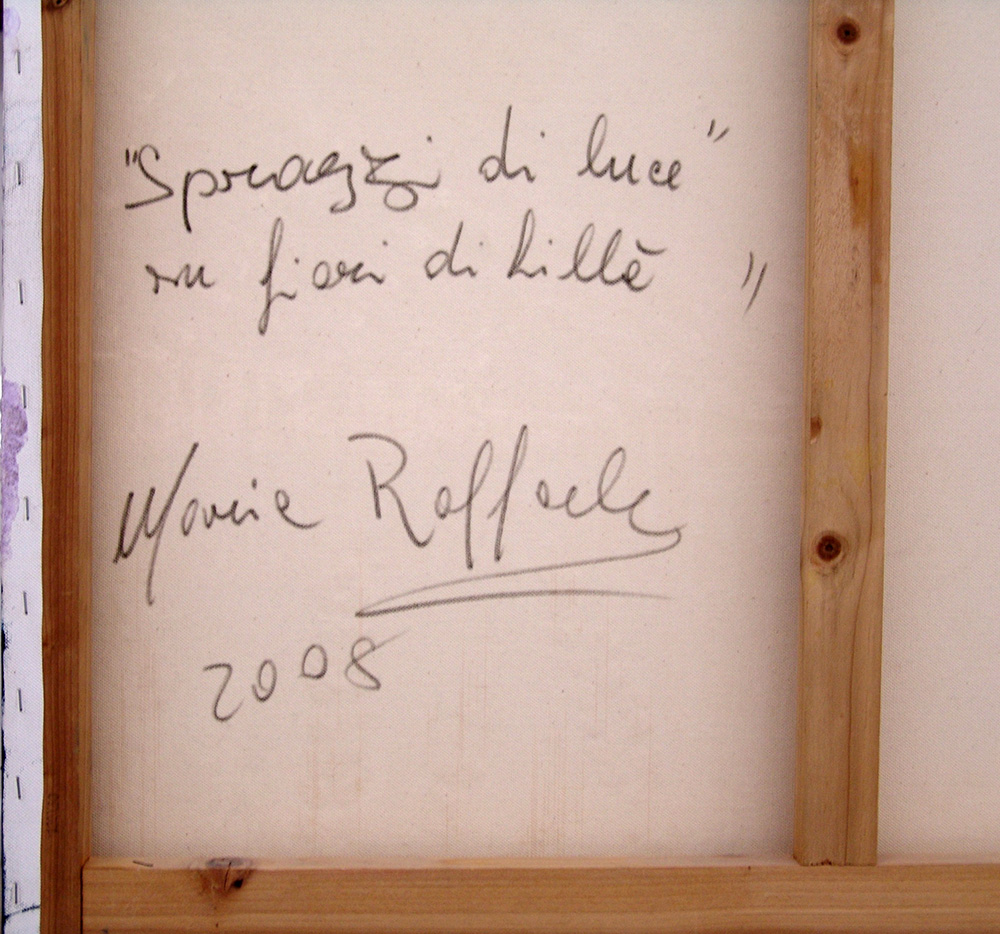 "Sprazzi di luce"
su fiori di Lillà "
Maria Raffaele
2008